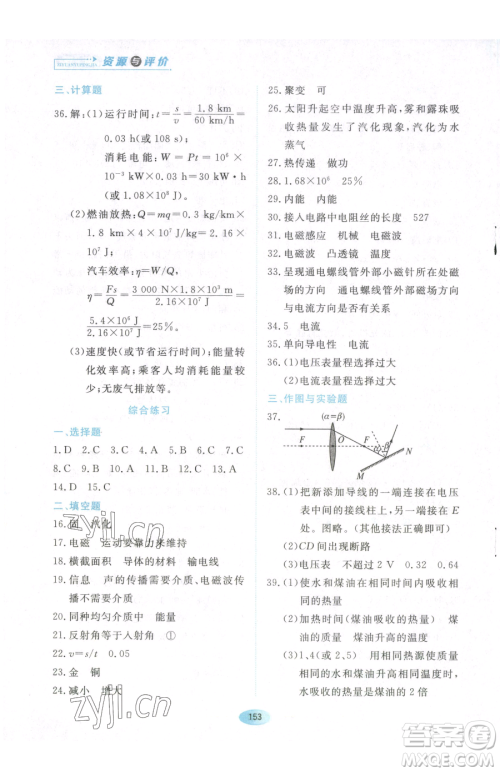 资源与评价
三、计算题
36.解:(1)运行时间:t=s/v=1.8 km/60 km/h=
0.03 h(或108 s)
消耗电能:W=Pt=10³
kW×0.03 h=30 kW·h(或
1.08×10⁸ J)
(2)燃油放热:Q=mq=0.5×
4.3×10⁷ J/kg=2.16×10⁷ J
汽车效率:η=W/Q
η=Fs/Q=3 000 N×1.8×10³ m/2.16×10⁷ J=
5.4×10⁶ J/2.16×10⁷ J=25%
(3)速度快(或节省运行时间);燃
化效率高;乘客人均消耗能量
少;无废气排放等。
综合练习
一、选择题
1.D 2.A 3.D 4.C 5.C 6.C
7.C 8.B 9.B
14.D 15.C
二、填空题
16.固 汽化
17.电磁 运动不要靠力来维持
18.横截面积 导体的材料 输电线
19.信息 声的传播需要介质、电磁波
的传播不需要介质
20.同种均匀介质中 能量
21.反射角等于入射角 ①
22.v=s/t 0.05
23.金 铜
24.减小 增大
25.聚变 可
26.太阳升起空中温度升高,雾或露珠吸
收热量发生了汽化现象,汽化为水
蒸气
27.热传递 做功
28.1.68×10⁶ 25%
29.内能 内能
30.接入电路中电阻丝的长度 527
31.电磁感应 机械 电磁
32.电磁波 凸透镜 电磁
33.呈现通电螺线管外部小磁针所在处磁
场的方向 通电螺线管外部磁场方向
与电流方向是否有关
34.5 电流
35.单向导电性 电流
36.(1)电压表量程选择过大
(2)电压表量程选择过大
三、作图与实验题
37.
(α=β)
F O F
α β
M N
38.(1)把新添加导线的一端连接在电压
表中间的接线柱上,另一端接在E
处。图略。(其他接法正确即可)
(2)CD间出现断路
(3)电压表 不超过2 V 0.32 0.64
39.(1)使水和煤油在相同时间内吸收相
同的热量
(2)加热时间 煤油吸收的热量 煤
油升高的温度 煤油升高的温度
(3)1,4(或2,5) 用相同热源加热相同
的时间 水和煤油升高相同的温度时,
水吸收的热量是煤油的2倍
153
zyjl.cn
zyjl.cn
作业精灵